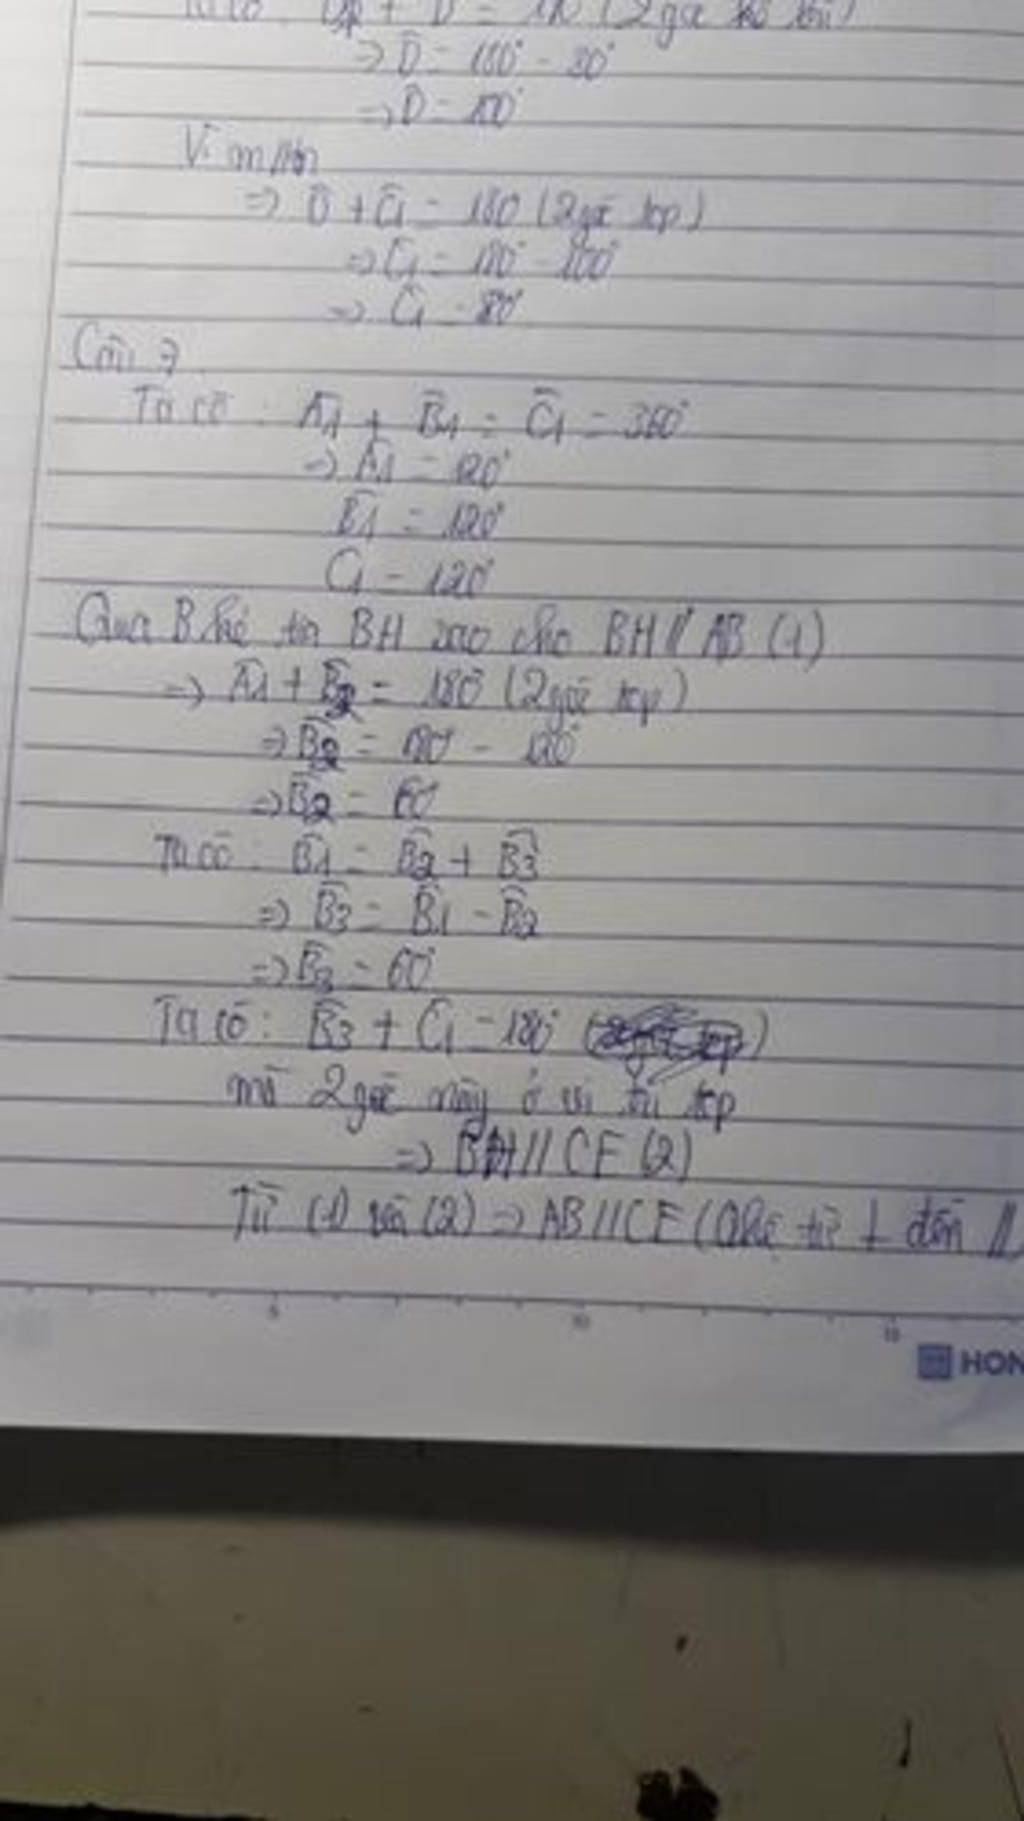 ⇒ D̂ = 180° - 80°
⇒ D̂ = 100°
Vì m//n
⇒ D̂ + Ĉ1 = 180° (2 góc tcp)
⇒ Ĉ1 = 180° - 100°
⇒ Ĉ1 = 80°
Câu 7
Ta có : Â1 + B̂1 = Ĉ1 = 360°
⇒ Â1 = 120°
B̂1 = 120°
C1 = 120°
Qua B kẻ tia BH sao cho BH // AB (1)
⇒ Â1 + B̂2 = 180° (2 góc tcp)
⇒ B̂2 = 180° - 120°
⇒ B̂2 = 60°
Ta có : B̂1 = B̂2 + B̂3
⇒ B̂3 = B̂1 - B̂2
⇒ B̂3 = 60°
Ta có : B̂3 + Ĉ1 = 180°
mà 2 góc này ở vị trí tcp
⇒ BH // CF (2)
Từ (1) và (2) ⇒ AB // CF ( từ ⊥ đến //
5 10 15
HON